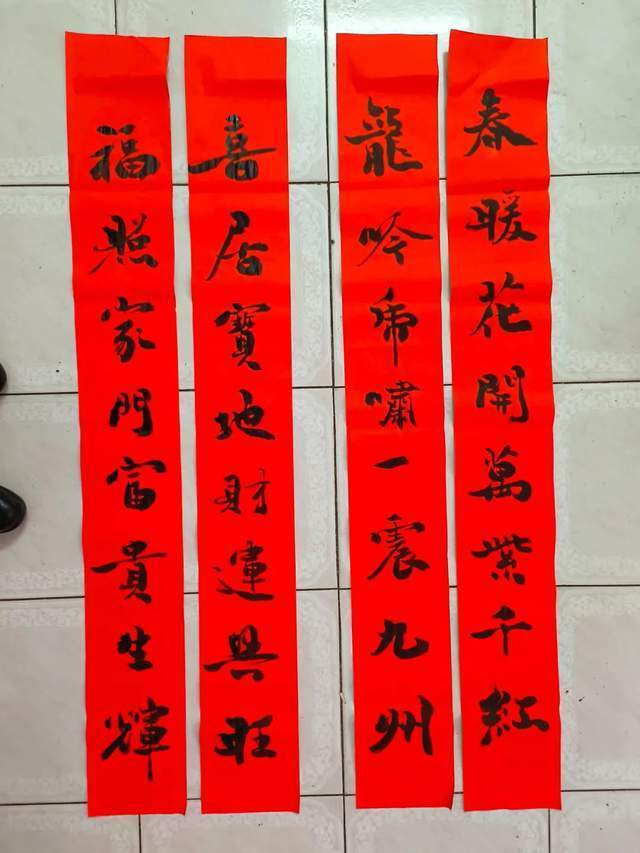 春暖花開萬紫千紅
龍吟虎嘯一震九州
喜居寶地財運興旺
福照家門富貴生輝